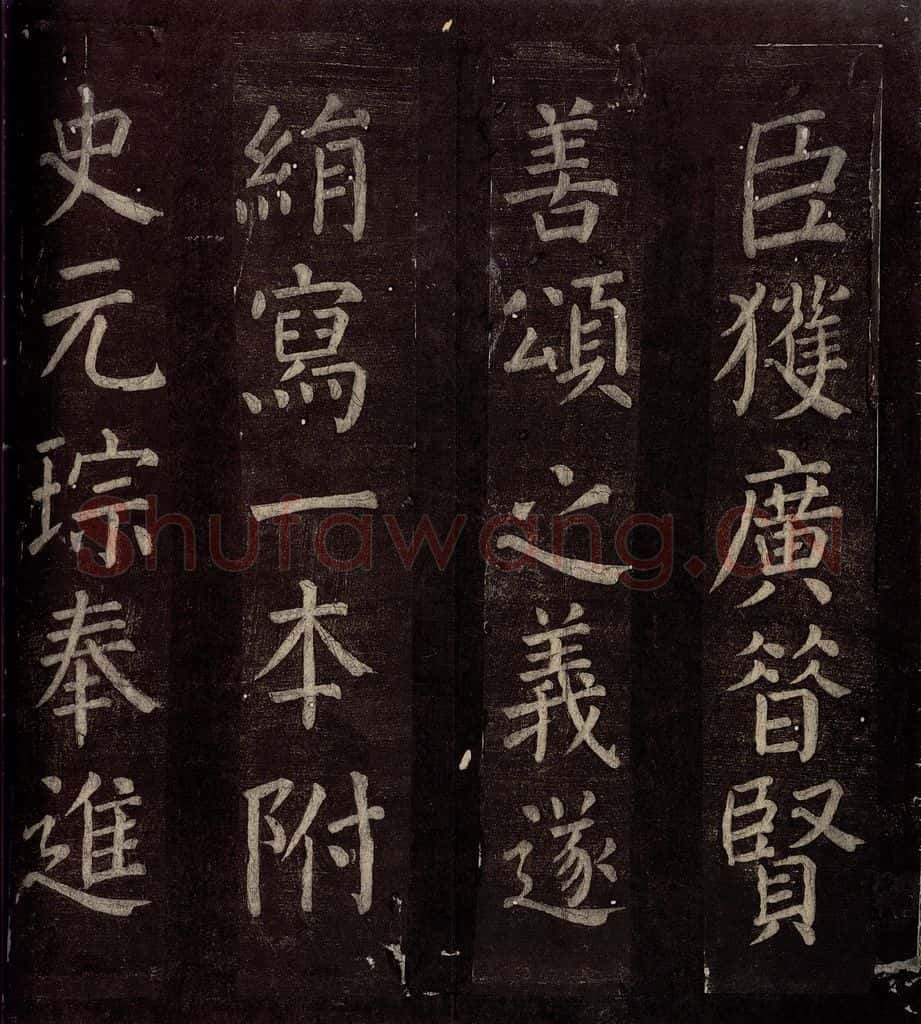 臣獲廣昔賢
善頌之義遂
絹寫一本附
史元琮奉進
Shufawang.cn